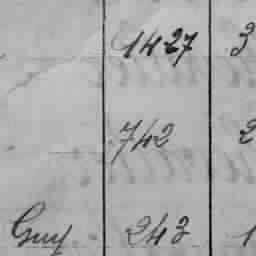 1427 3
742 2
Guy 243 1